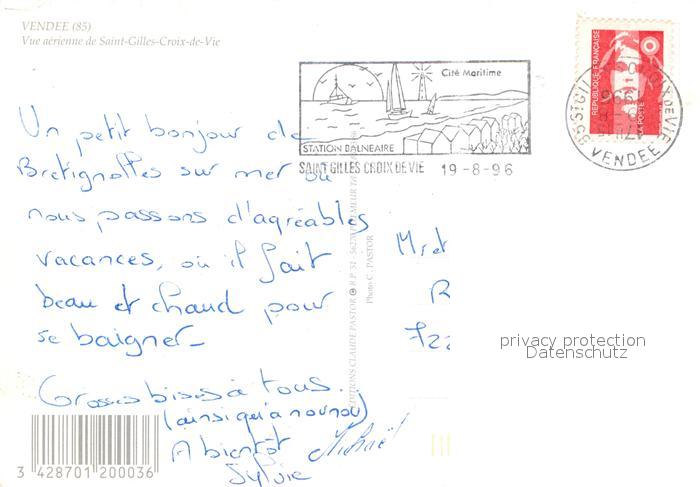 VENDEE (85)
Vue aérienne de Saint-Gilles-Croix-de-Vie
Cité Maritime
STATION BALNEAIRE
SAINT GILLES CROIX DE VIE 19-8-96
REPUBLIQUE FRANÇAISE
LA POSTE
VENDEE
Un petit bonjour de
Bretignolles sur mer où
nous passons d'agréables
vacances, où il fait
beau et chaud pour
se baigner_
Grosses bises à tous.
(ainsi qu'a nounou)
A bientôt
Sylvie Michaël
EDITIONS CLAUDE PASTOR
Photo C. PASTOR
M et
R
722
privacy protection
Datenschutz
3 428701 200036